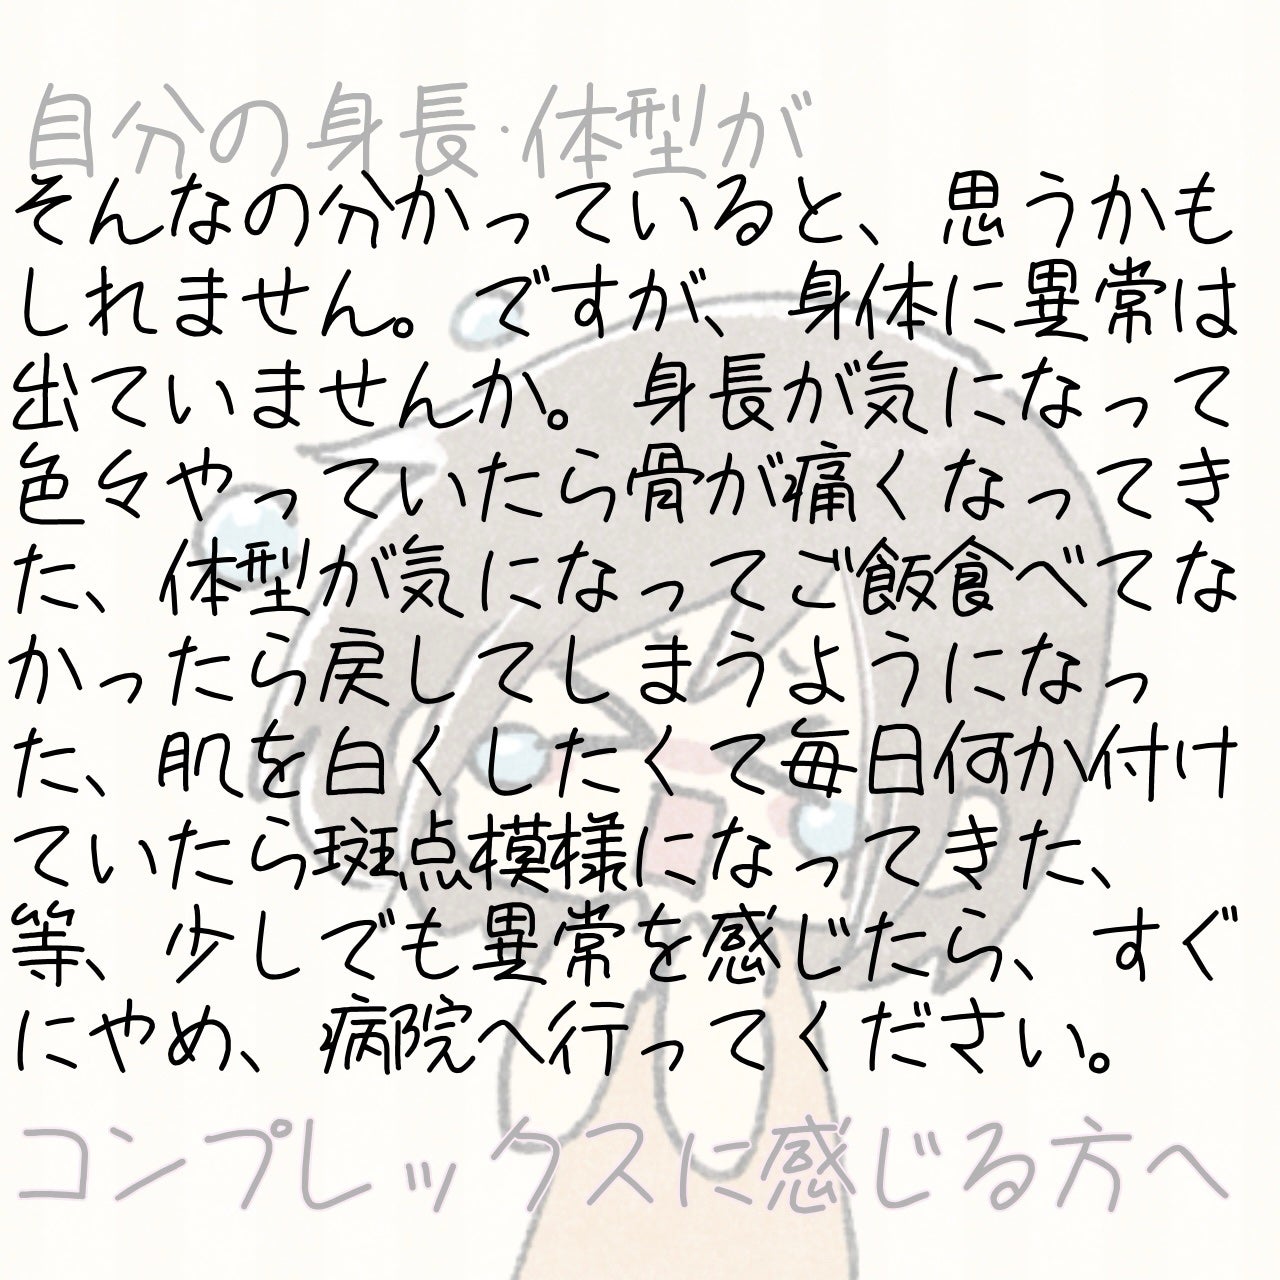 自分の身長·体型が
そんなの分かっていると、思うかも
しれません。ですが、身体に異常は
出ていませんか。身長が気になって
色々やっていたら骨が痛くなってき
た、体型が気になってご飯食べてな
かったら戻してしまうようになっ
た、肌を白くしたくて毎日何か付け
ていたら斑点模様になってきた、
等、少しでも異常を感じたら、すぐ
にやめ、病院へ行ってください。
コンプレックスに感じる方へ